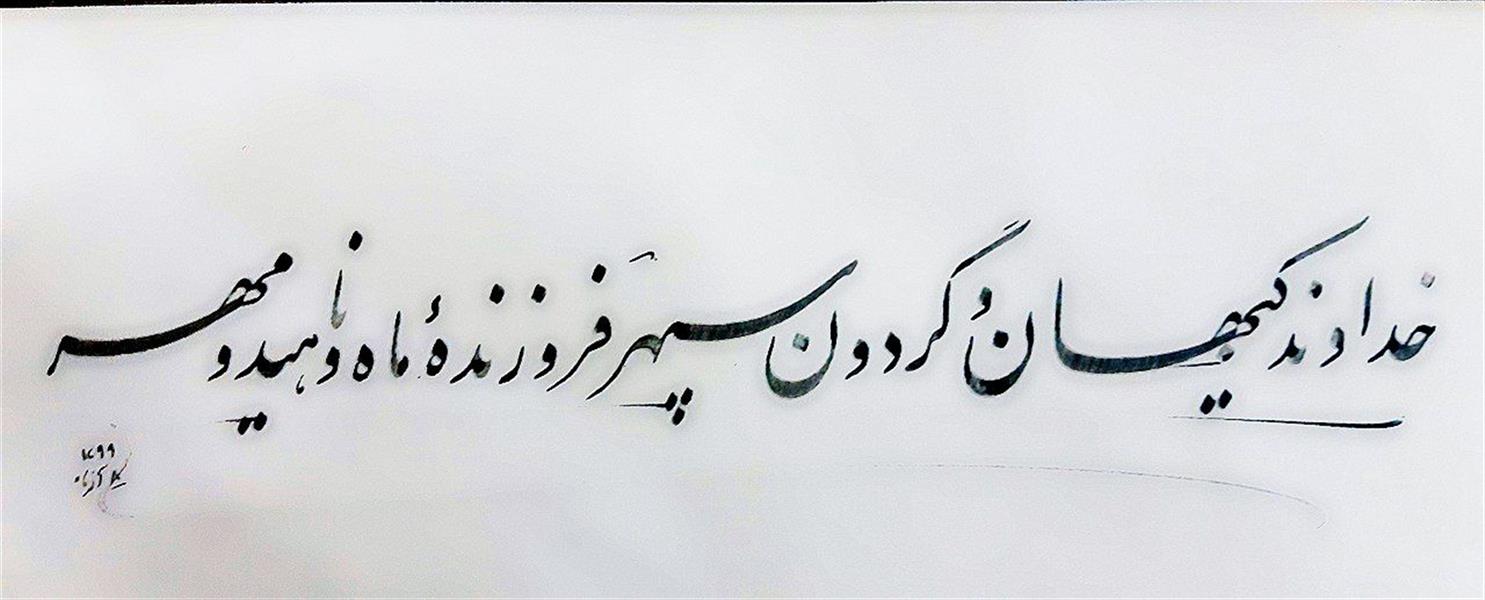 خداوند کیهان و گردون سپهر فروزندهٔ ماه و ناهید و مهر
۱۳۹۹